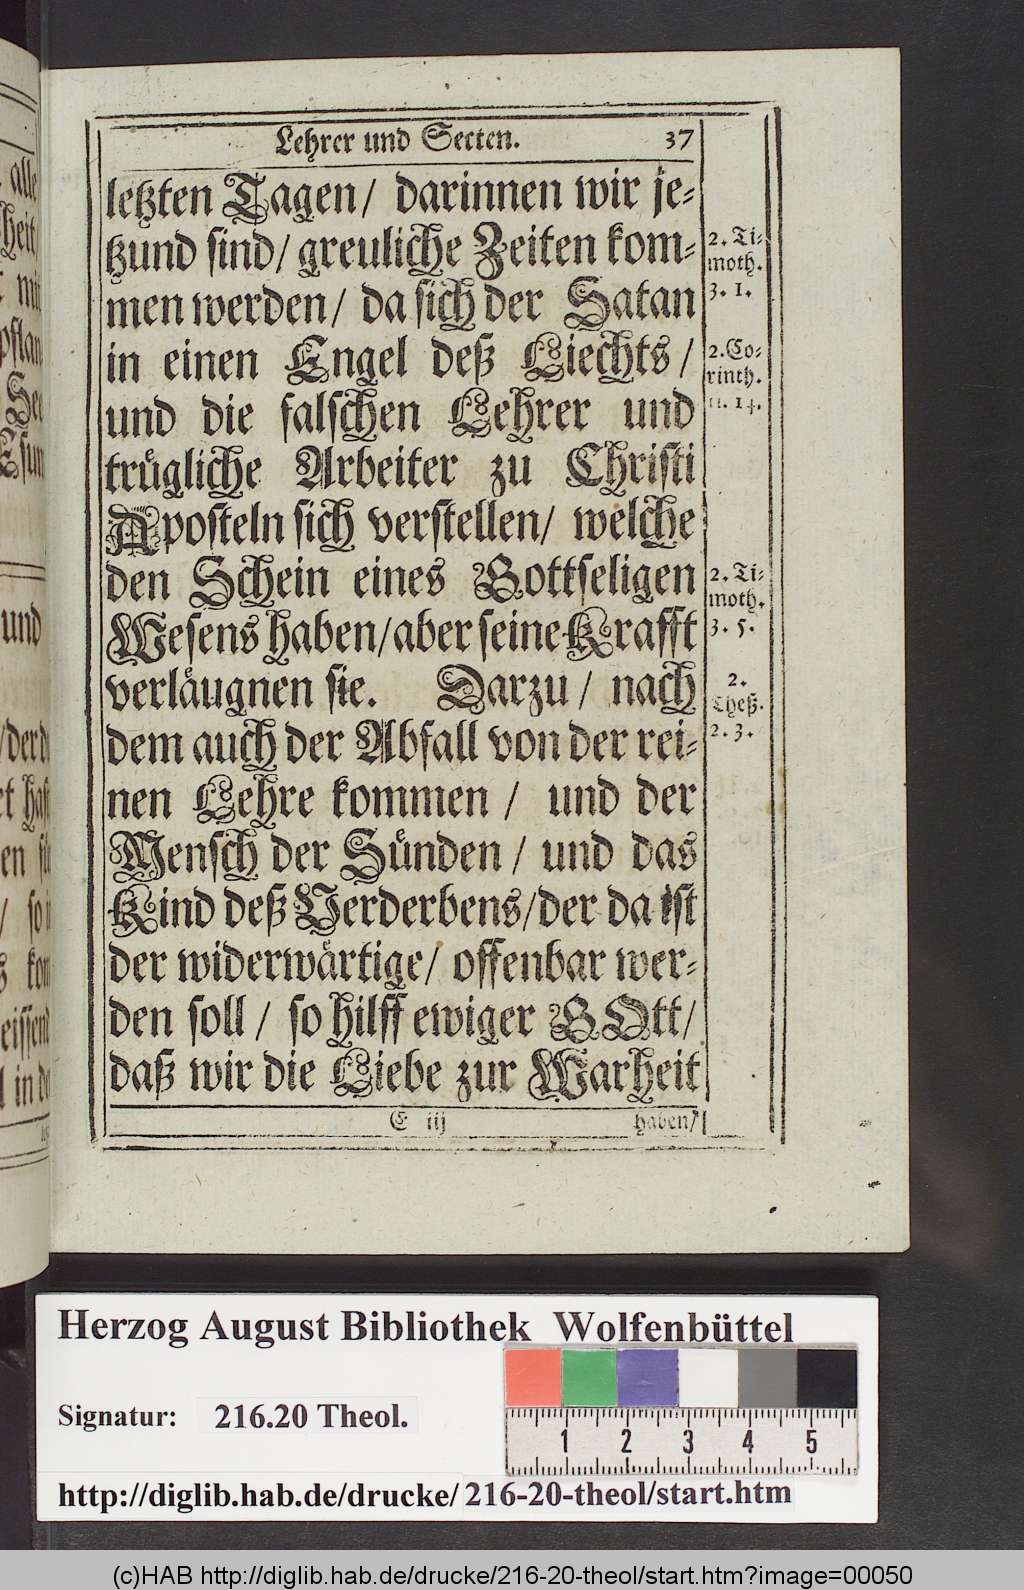 Lehrer und Secten. 37
letzten Tagen/ darinnen wir je-
tzund sind/ greuliche Zeiten kom-
men werden/ da sich der Satan
in einen Engel deß Liechts/
und die falschen Lehrer und
trügliche Arbeiter zu Christi
Aposteln sich verstellen/ welche
den Schein eines Gottseligen
Wesens haben/ aber seine Krafft
verläugnen sie. Darzu/ nach
dem auch der Abfall von der rei-
nen Lehre kommen/ und der
Mensch der Sünden/ und das
Kind deß Verderbens/ der da ist
der widerwärtige/ offenbar wer-
den soll/ so hilff ewiger GOtt/
daß wir die Liebe zur Warheit
E iij haben/
2. Ti-
moth.
3. 1.
2. Co-
rinth.
11. 14.
2. Ti-
moth.
3. 5.
2.
Theß.
2. 3.
alle
heit
mit
und
Herzog August Bibliothek Wolfenbüttel
Signatur: 216.20 Theol.
1 2 3 4 5
http://diglib.hab.de/drucke/216-20-theol/start.htm
(c)HAB http://diglib.hab.de/drucke/216-20-theol/start.htm?image=00050